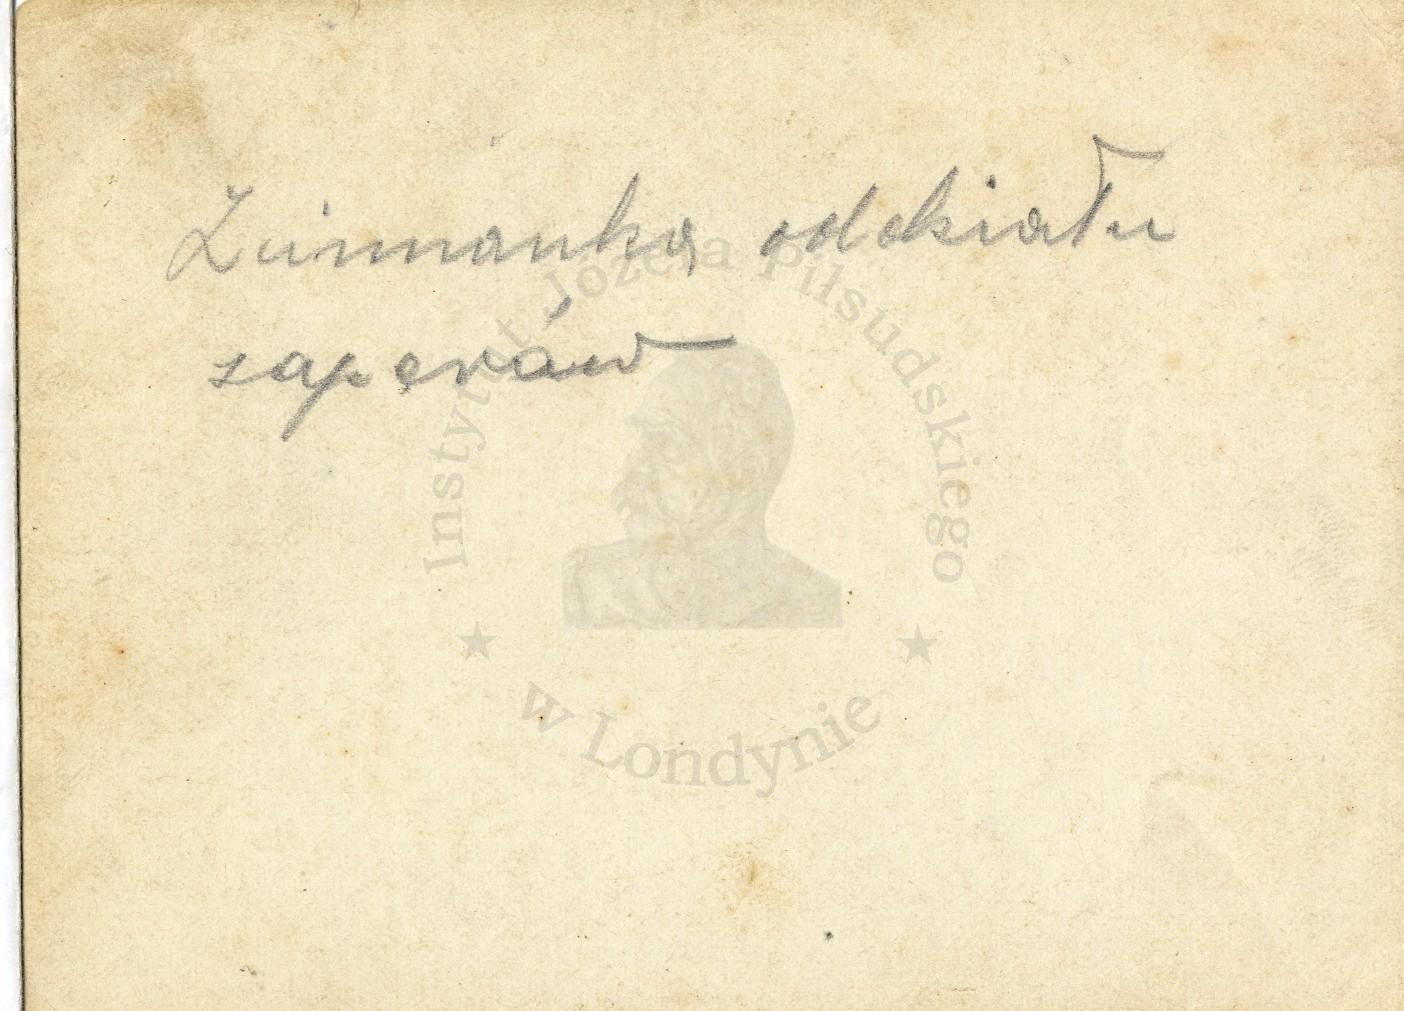 Ziemianka oddziału
saperów
Instytut Józefa Piłsudskiego
★ ★
w Londynie